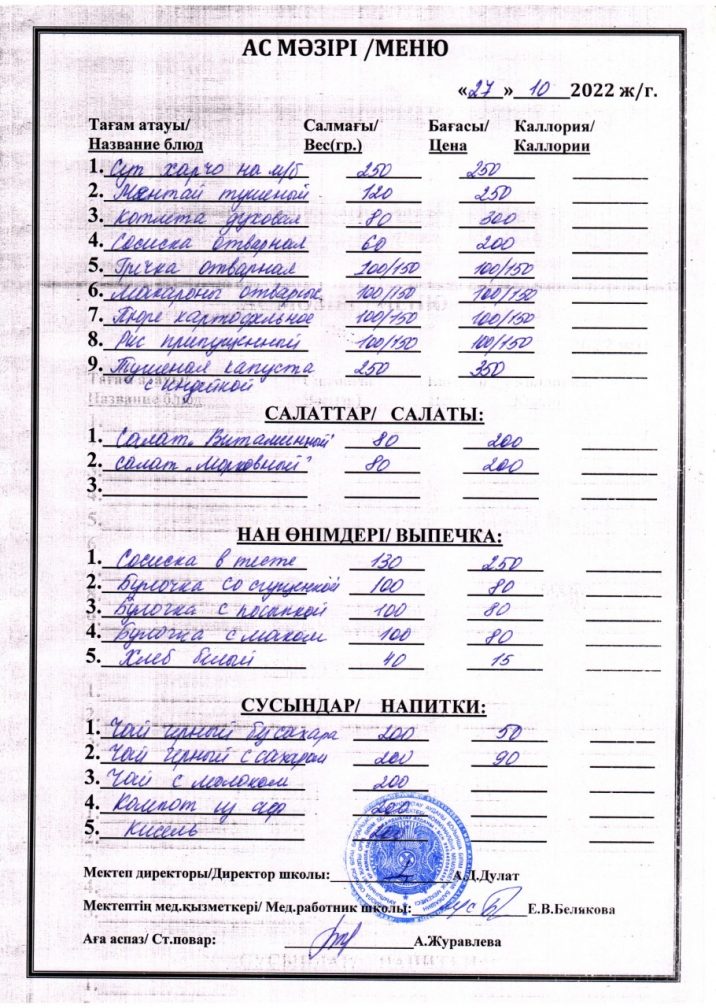 АС МӘЗІРІ /МЕНЮ
«27» 10 2022 ж/г.
Тағам атауы/ Салмағы/ Бағасы/ Каллория/
Название блюд Вес(гр.) Цена Каллории
1. Суп харчо на м/б 250 250
2. Минтай тушеный 120 250
3. Котлета духовая 80 300
4. Сосиска отварная 60 200
5. Гречка отварная 100/150 100/150
6. Макароны отварные 100/150 100/150
7. Пюре картофельное 100/150 100/150
8. Рис припущенный 100/150 100/150
9. Тушеная капуста 250 350
с индейкой
САЛАТТАР/ САЛАТЫ:
1. Салат „Витаминный" 80 200
2. салат „Морковный" 80 200
3.
НАН ӨНІМДЕРІ/ ВЫПЕЧКА:
1. Сосиска в тесте 130 250
2. Булочка со сгущенкой 100 80
3. Булочка с посыпкой 100 80
4. Булочка с маком 100 80
5. Хлеб белый 40 15
СУСЫНДАР/ НАПИТКИ:
1. Чай черный без сахара 200 50
2. Чай черный с сахаром 200 90
3. Чай с молоком 200
4. Компот из 200
5. Кисель 200
Мектеп директоры/Директор школы: А.Д.Дулат
Мектептің мед.қызметкері/ Мед.работник школы: Е.В.Белякова
Аға аспаз/ Ст.повар: А.Журавлева